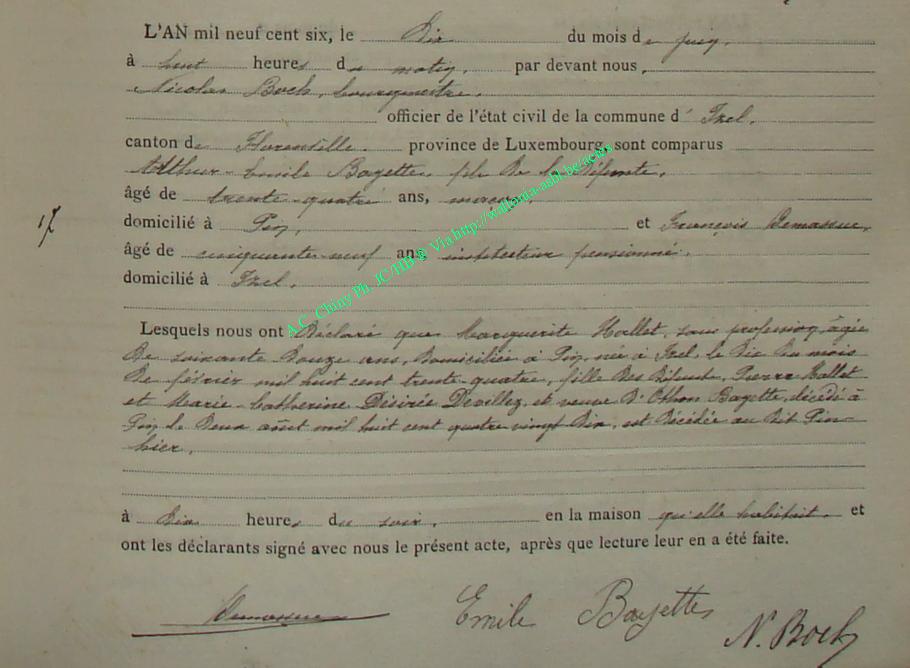 L'AN mil neuf cent six, le dix du mois de juin,
à huit heures du matin, par devant nous,
Nicolas Bock, bourgmestre,
officier de l'état civil de la commune d'Izel,
canton de Florenville, province de Luxembourg, sont comparus
Arthur Emile Bayette, fils de la défunte,
âgé de trente quatre ans,
domicilié à Pin, et François Demasuee,
âgé de cinquante-neuf ans, instituteur pensionné,
domicilié à Izel.
17
Lesquels nous ont Déclaré que Marguerite Hallet, sans profession, âgée
de soixante douze ans, domiciliée à Pin, née à Izel, le dix du mois
de février mil huit cent trente-quatre, fille des défunts, Pierre Hallet
et Marie Catherine Désirée Devillez, et veuve d'Othon Bayette, décédé à
Pin le deux août mil huit cent quatre vingt dix, est décédée au dit Pin
hier,
à dix heures du soir, en la maison qu'elle habitait, et
ont les déclarants signé avec nous le présent acte, après que lecture leur en a été faite.
Emile Bayette
N. Bock
A.C. Chiny Ph. JC/HB © Via http://wallonia-asbl.be/actes